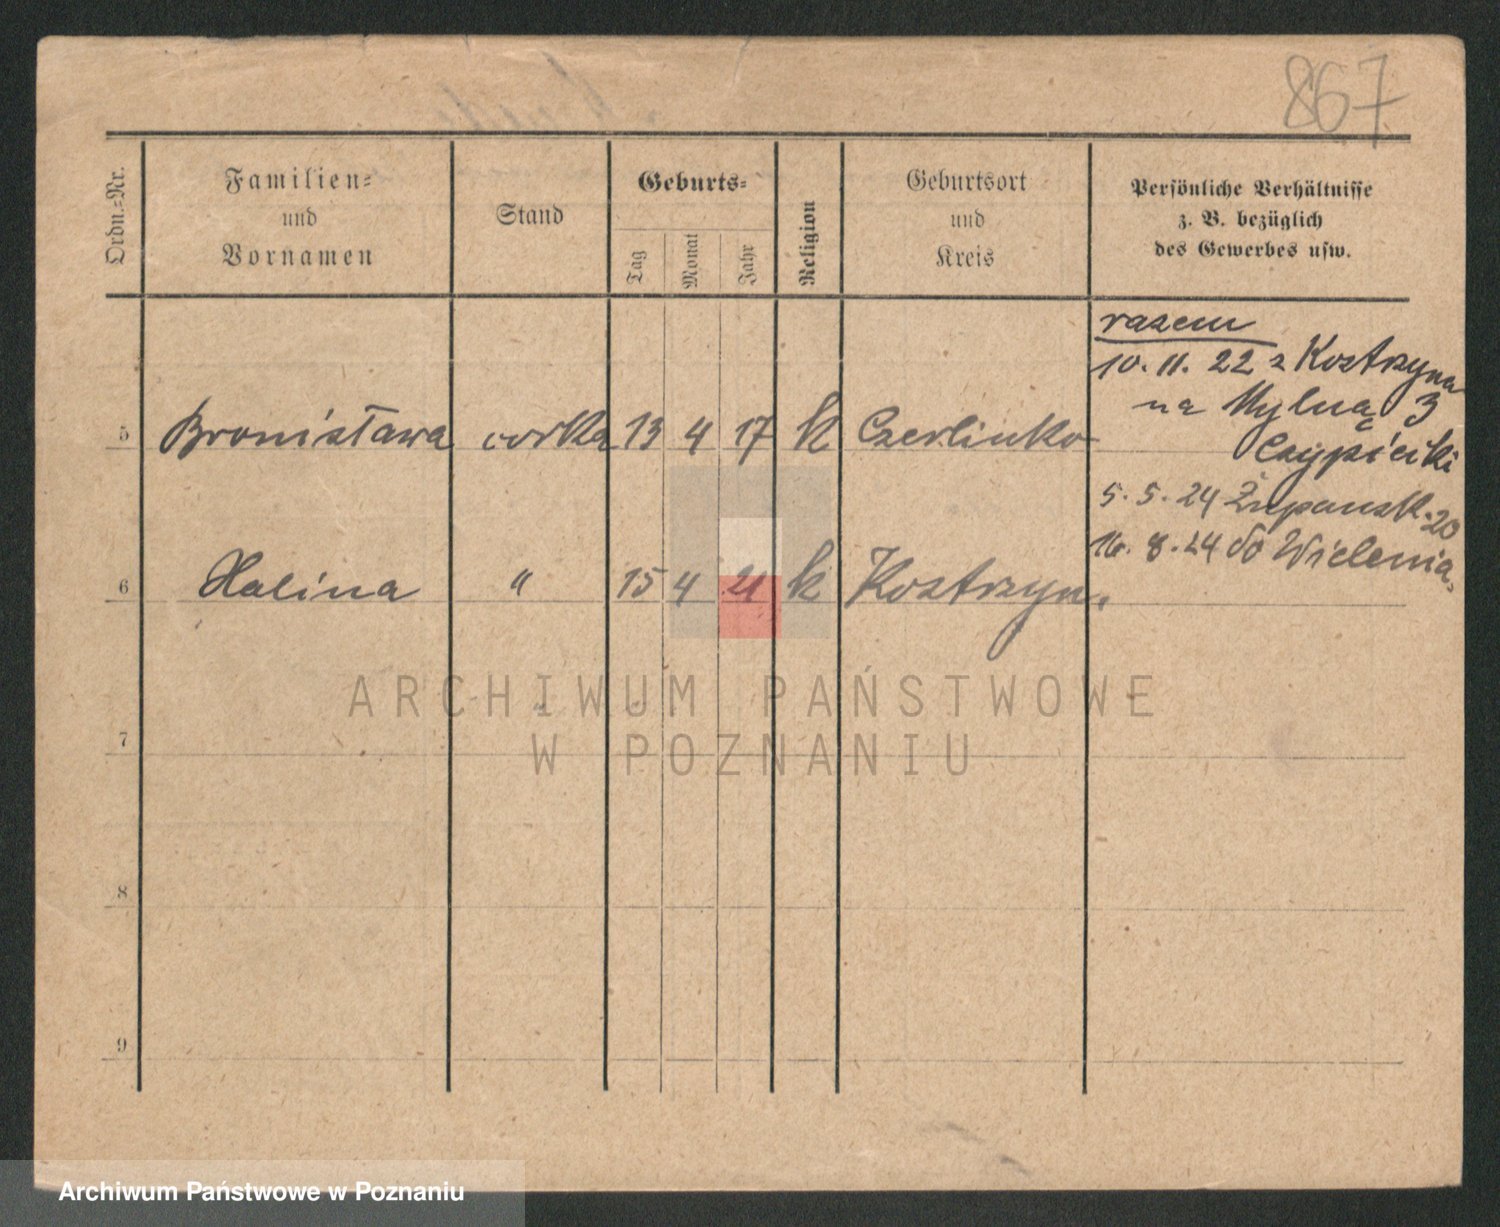 867
Ordn.=Nr.
Familien=
und
Vornamen
Stand
Geburts=
Tag
Monat
Jahr
Religion
Geburtsort
und
Kreis
Persönliche Verhältnisse
z. B. bezüglich
des Gewerbes usw.
razem
10. 11. 22 z Kostrzyna
na Mylną 3
5 Bronisława córka 13 4 17 k Czerlinko
5. 5. 24 Żupansk. 20
16. 8. 24 do Wielenia,
6 Halina " 15 4 21 k Kostrzyn.
7
8
9
ARCHIWUM PAŃSTWOWE
W POZNANIU
Archiwum Państwowe w Poznaniu